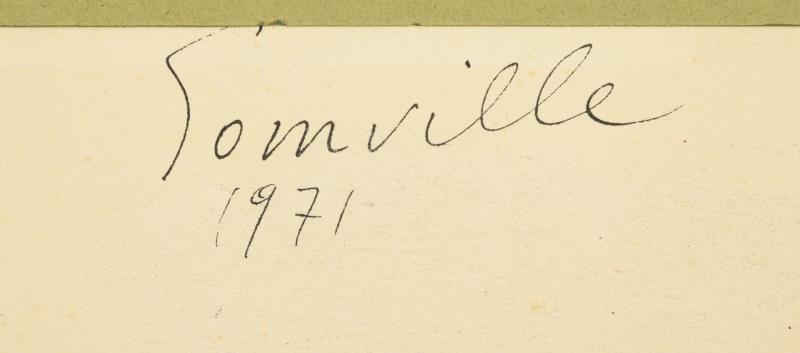 Somville
1971